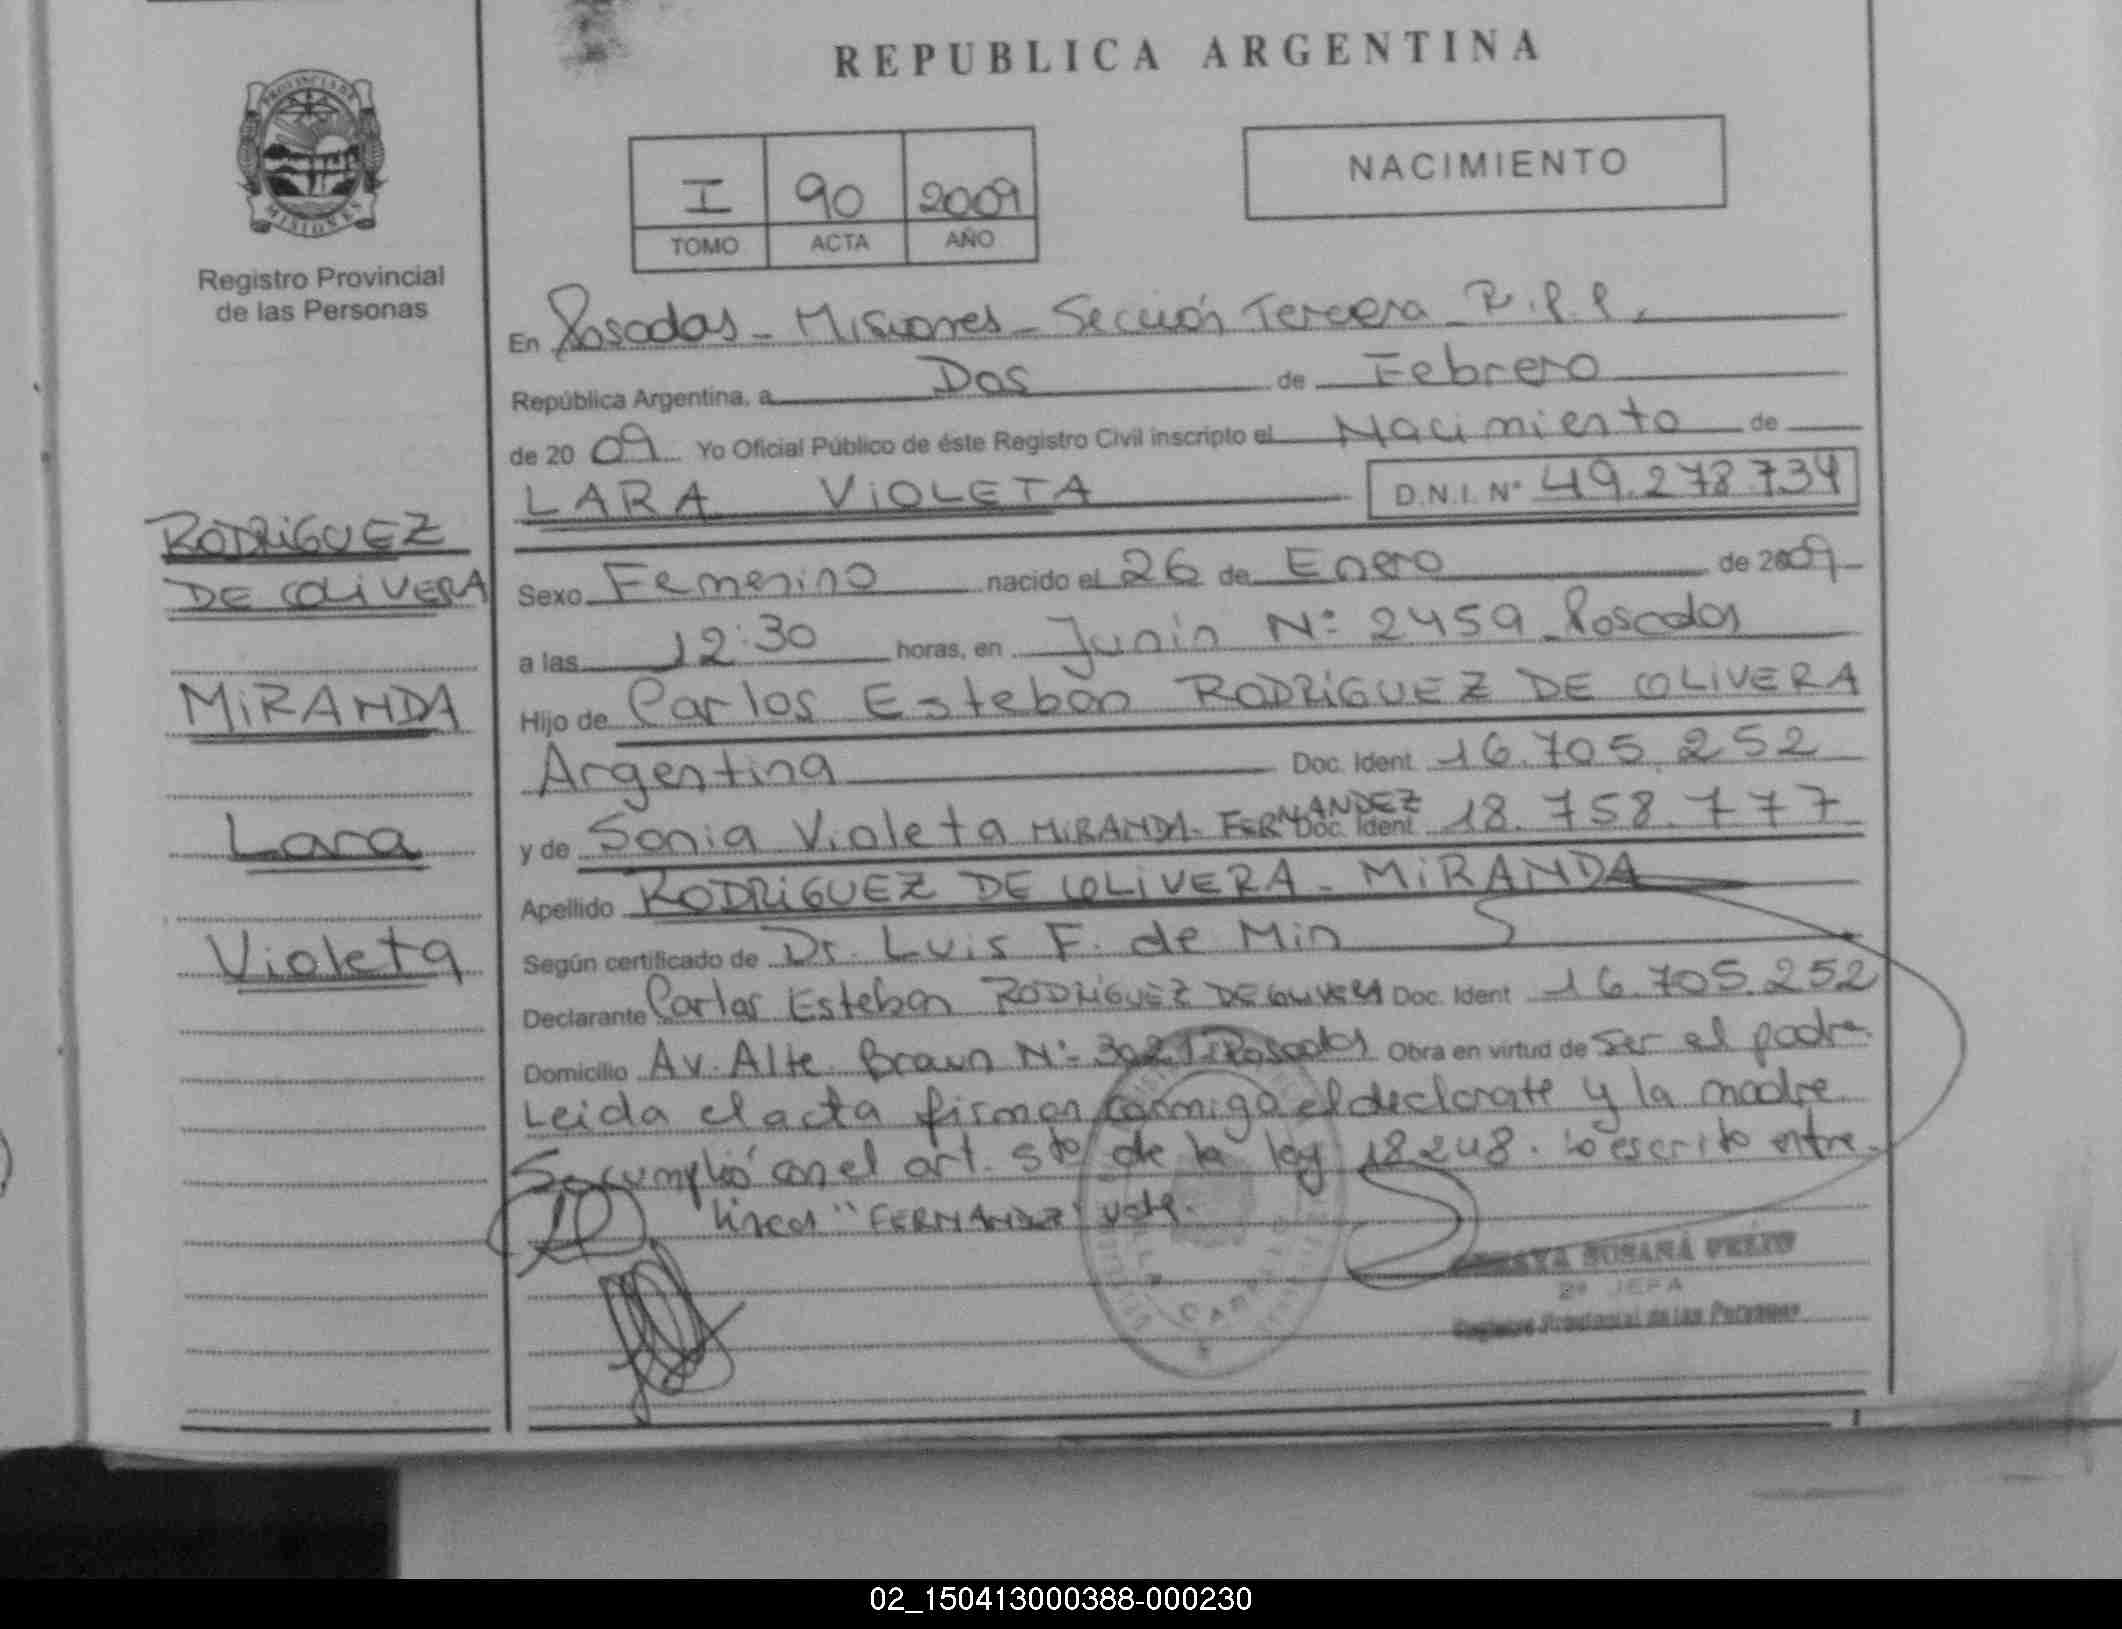 REPUBLICA ARGENTINA
PROVINCIA DE
MISIONES
Registro Provincial
de las Personas
I 90 2009
TOMO ACTA AÑO
NACIMIENTO
En Posadas - Misiones - Sección Tercera R.P.P.
República Argentina, a Dos de Febrero
de 2009 Yo Oficial Público de éste Registro Civil inscripto el Nacimiento de
LARA VIOLETA D.N.I. N° 49.278.734
RODRIGUEZ
DE OLIVERA
MIRANDA
Lara
Violeta
Sexo Femenino nacido el 26 de Enero de 2009
a las 12:30 horas, en Junin N° 2459 Posadas
Hijo de Carlos Esteban RODRIGUEZ DE OLIVERA
Argentina Doc. Ident 16.705.252
y de Sonia Violeta MIRANDA FERNANDEZ Doc. Ident 18.758.777
Apellido RODRIGUEZ DE OLIVERA - MIRANDA
Según certificado de Dr. Luis F. de Min
Declarante Carlos Esteban RODRIGUEZ DE OLIVERA Doc. Ident 16.705.252
Domicilio Av. Alte. Brown N° 3021 Posadas Obra en virtud de ser el padre.
Leida el acta firman conmigo el declarate y la madre
Se cumplió con el art. 5to de la ley 18248. lo escrito entre
lineas "FERNANDEZ" vale.
SUSANA
2° JEFA
Registro Provincial de las Personas
02_150413000388-000230